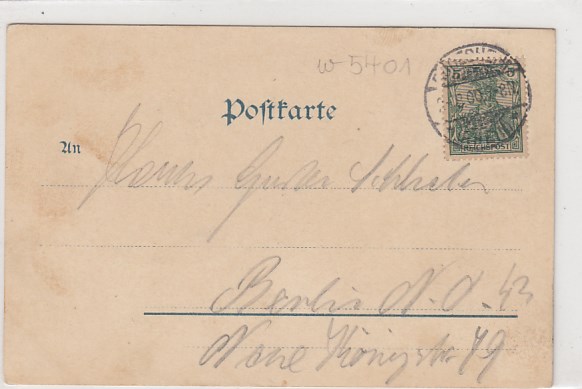 w-5401
Postkarte
5 5
REICHSPOST
An
Gustav
Berlin N.O. 43
Neue Königstr 79